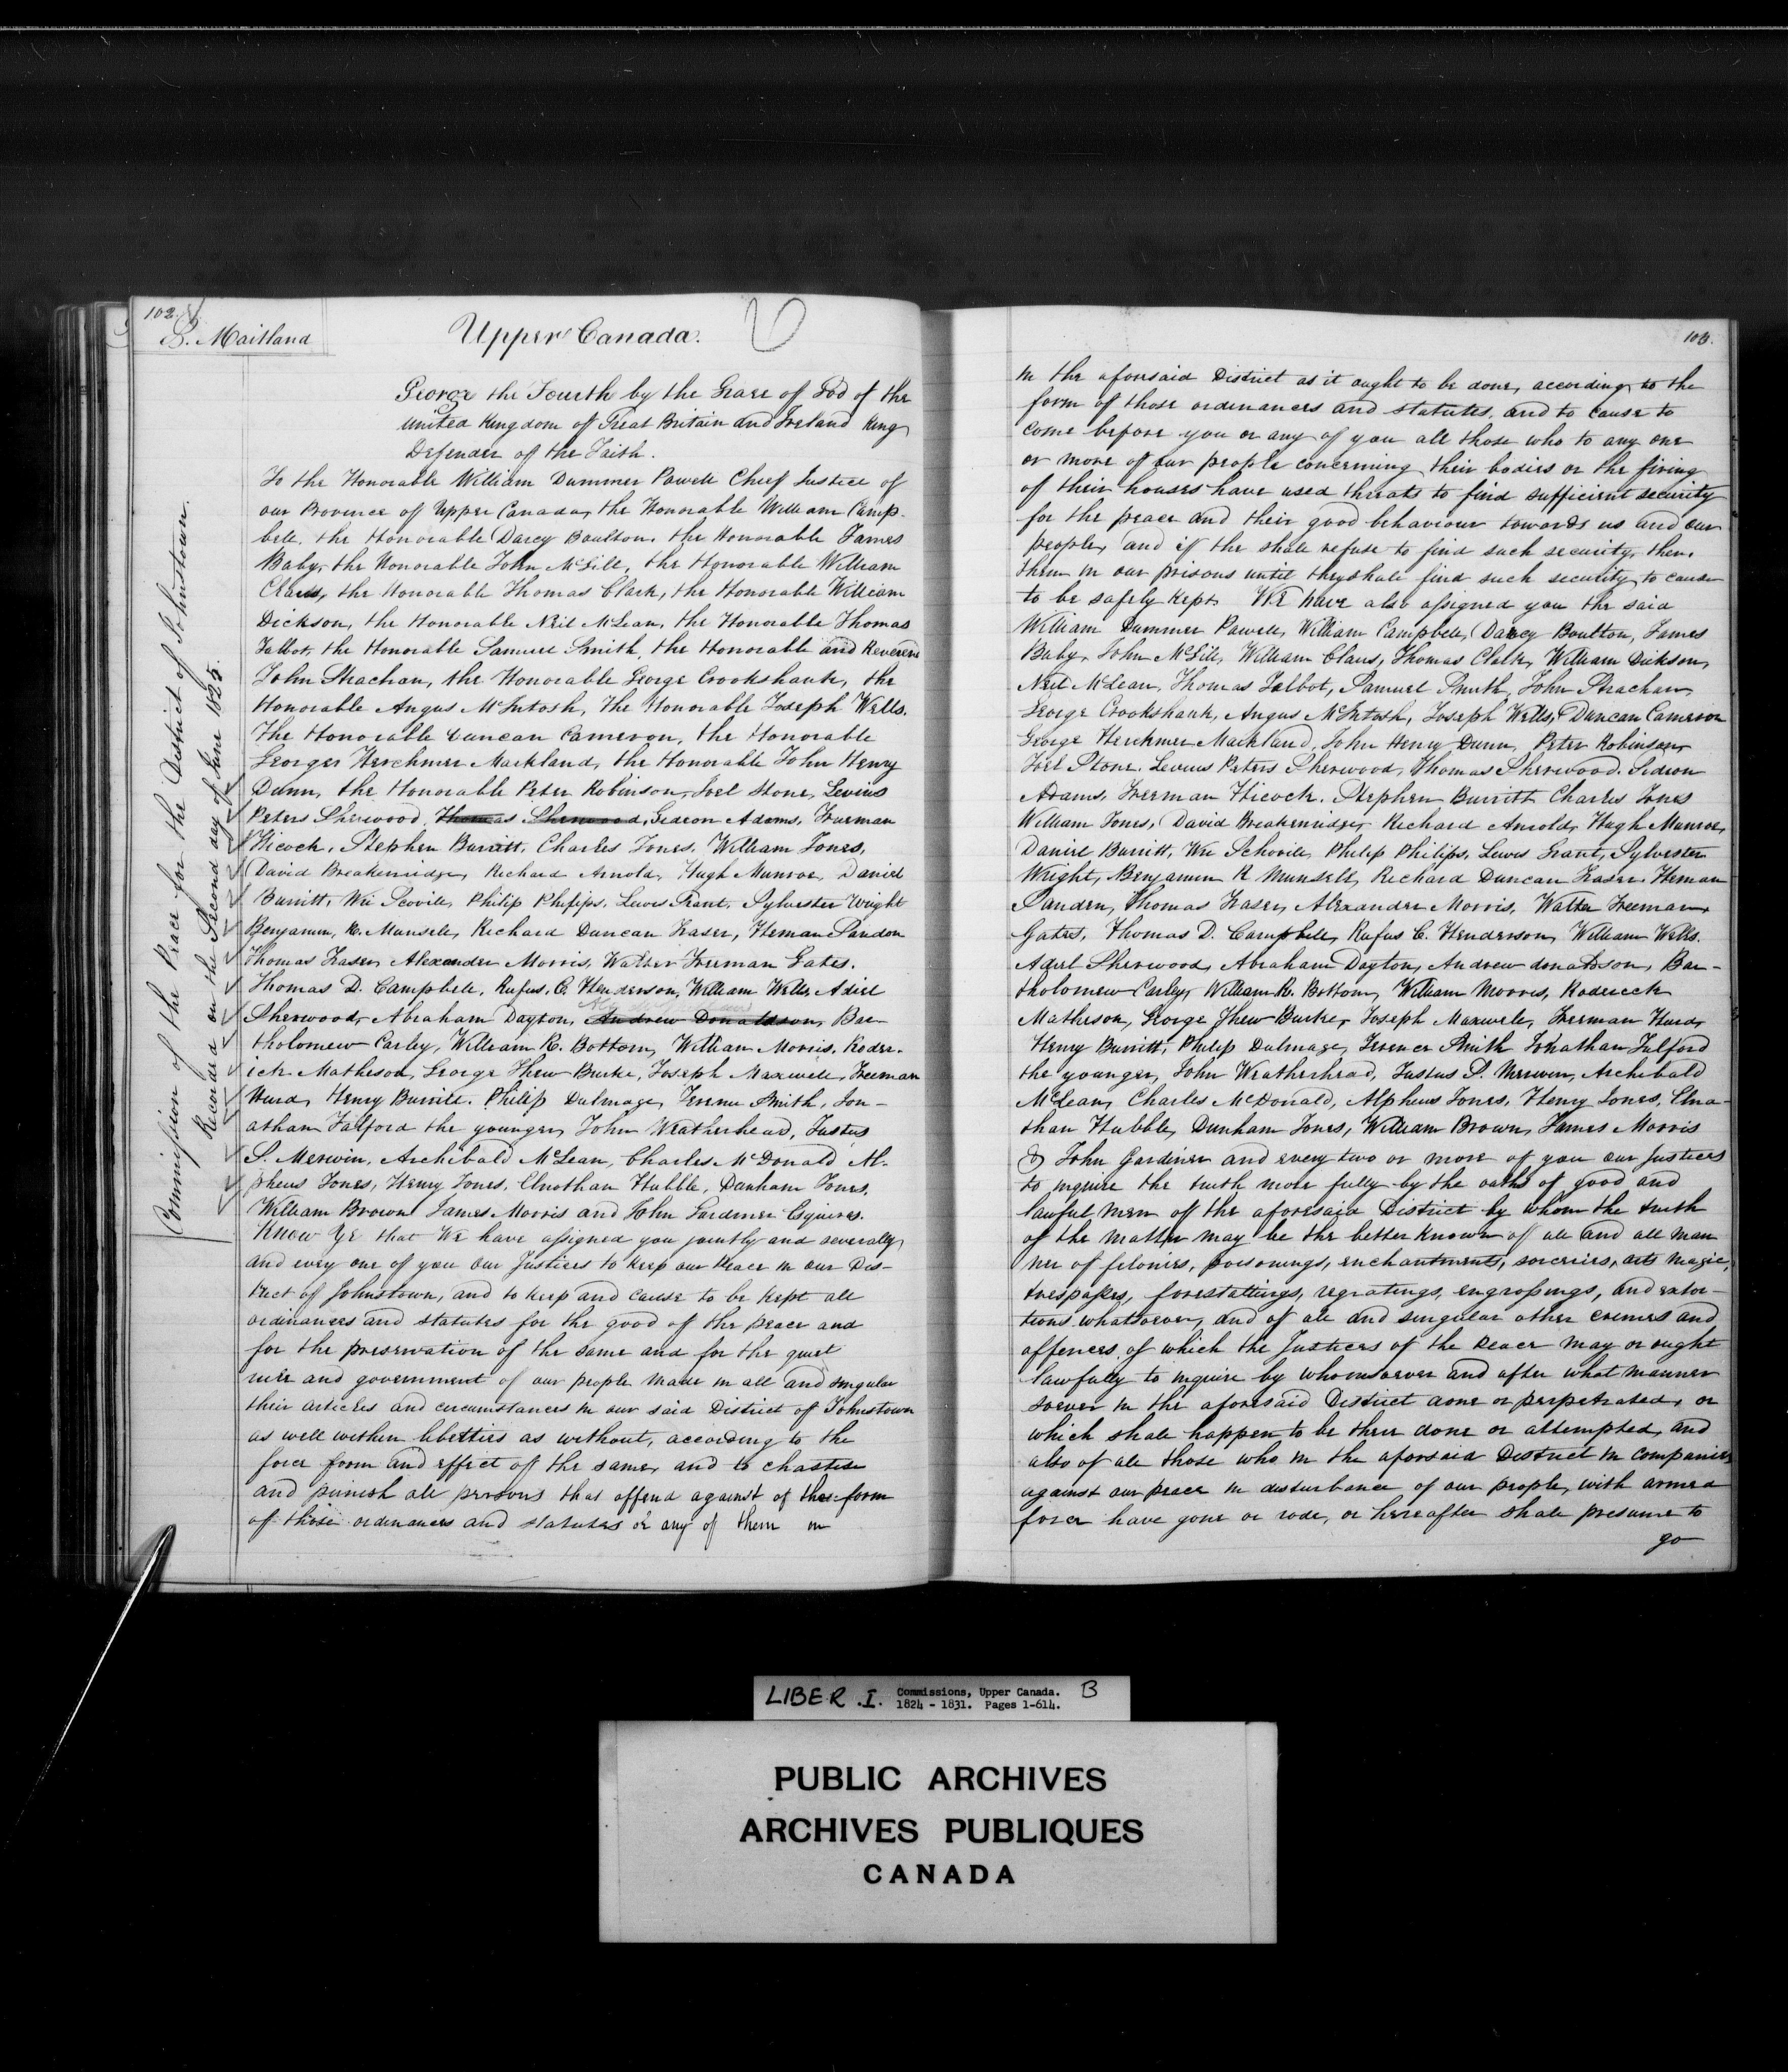 102.
P. Maitland
Upper Canada.
Commission of the Peace for the District of Johnstown.
Recorded on the Second day of June 1825.
George the Fourth by the Grace of God of the
united Kingdom of Great Britain and Ireland King
Defender of the Faith.
To the Honorable William Dummer Powell Chief Justice of
our Province of Upper Canada, the Honorable William Camp-
bell, the Honorable Darcy Boulton, the Honorable James
Baby, the Honorable John McGill, the Honorable William
Claus, the Honorable Thomas Clark, the Honorable William
Dickson, the Honorable Neil McLean, the Honorable Thomas
Talbot, the Honorable Samuel Smith, the Honorable and Reverend
John Strachan, the Honorable George Crookshank, the
Honorable Angus McIntosh, The Honorable Joseph Wells.
The Honorable Duncan Cameron, the Honorable
George Herchmer Markland, the Honorable John Henry
Dunn, the Honorable Peter Robinson, Joel Stone, Levius
Peters Sherwood, Thomas Sherwood, Gideon Adams, Truman
Hicock, Stephen Burritt, Charles Jones, William Jones,
David Breakenridge, Richard Arnold, Hugh Munroe, Daniel
Burritt, Wm Scovill, Philip Philips, Lewis Grant, Sylvester Wright
Benjamin, R. Munsell, Richard Duncan Fraser, Heman Landon
Thomas Fraser, Alexander Morris, Walter Freeman Gates.
Thomas D. Campbell, Rufus, C. Henderson, William Wells, Adiel
Sherwood, Abraham Dayton, Andrew Donaldson, Bar-
tholomew Carley, William R. Bottom, William Morris, Roder-
ick Matheson, George Thew Burke, Joseph Maxwell, Freeman
Hurd, Henry Burritt. Philip Dulmage, Terence Smith, Jon-
athan Fulford the younger, John Weatherhead, Justus
S. Merwin, Archibald McLean, Charles McDonald Al-
pheus Jones, Henry Jones, Elnathan Hubble, Dunham Jones,
William Brown James Morris and John Gardiner Esquires.
Know Ye that We have assigned you jointly and severally
and every one of you our Justices to keep our Peace in our Dis-
trict of Johnstown, and to keep and cause to be kept all
ordinances and statutes for the good of the peace and
for the preservation of the same and for the quiet
rule and government of our people made in all and singular
their articles and circumstances in our said District of Johnstown
as well within liberties as without, according to the
force form and effect of the same, and to chastise
and punish all persons that offend against of the form
of those ordinances and statutes or any of them in
103.
in the aforesaid District as it ought to be done, according to the
form of those ordinances and statutes, and to cause to
come before you or any of you all those who to any one
or more of our people concerning their bodies or the firing
of their houses have used threats to find sufficient security
for the peace and their good behaviour towards us and our
people, and if the shall refuse to find such security, then
them in our prisons until they shall find such security to cause
to be safely kept. We have also assigned you the said
William Dummer Powell, William Campbell, Darcy Boulton, James
Baby, John McGill, William Claus, Thomas Clalk, William Dickson,
Neil McLean, Thomas Talbot, Samuel Smith, John Strachan,
George Crookshank, Angus McIntosh, Joseph Wells, Duncan Cameron
George Herchmer Markland, John Henry Dunn, Peter Robinson,
Joel Stone. Levius Peters Sherwood, Thomas Sherwood. Gideon
Adams, Truman Hicock. Stephen Burritt Charles Jones
William Jones, David Breakenridge, Richard Arnold, Hugh Munroe,
Daniel Burritt, Wm Schovill, Philip Philips, Lewis Grant, Sylvester
Wright, Benjamin R Munsell, Richard Duncan Fraser. Heman
Landen, Thomas Fraser, Alexander Morris, Walter Freeman,
Gates, Thomas D. Campbell, Rufus C. Henderson, William Wells.
Adiel Sherwood, Abraham Dayton, Andrew donaldson, Bar-
tholomew Carley, William R. Bottom, William Morris, Roderick
Matheson, George Thew Burke, Joseph Maxwell, Freeman Hurd,
Henry Burritt, Philip Dulmage, Terence Smith Jonathan Fulford
the younger, John Weatherhead, Justus S. Merwin, Archibald
McLean, Charles McDonald, Alpheus Jones, Henry Jones, Elna-
than Hubble, Dunham Jones, William Brown, James Morris
& John Gardiner and every two or more of you our Justices
to inquire the truth more fully by the oaths of good and
lawful men of the aforesaid District by whom the truth
of the matter may be the better known of all and all man
ner of felonies, poisonings, enchantments, sorceries, arts magic,
trespasses, forestallings, regratings, engrossings, and extor-
tions whatsoever, and of all and singular other crimes and
offences of which the Justices of the Peace may or ought
lawfully to inquire by whomsoever and after what manner
soever in the aforesaid District done or perpetrated, or
which shall happen to be there done or attempted, and
also of all those who in the aforesaid District in companies
against our peace in disturbance of our people, with armed
force have gone or rode, or hereafter shall presume to
go
LIBER .I. Commissions, Upper Canada. B
1824 - 1831. Pages 1-614.
PUBLIC ARCHIVES
ARCHIVES PUBLIQUES
CANADA